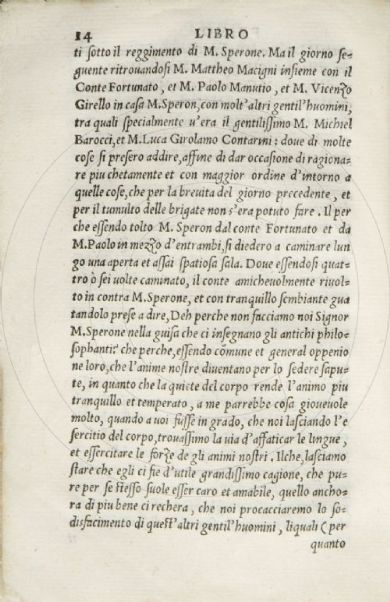 14 LIBRO
ti sotto il reggimento di M. Sperone. Ma il giorno se=
guente ritrouandosi M. Mattheo Macigni insieme con il
Conte Fortunato, et M. Paolo Manutio, et M. Vicenzo
Girello in casa M. Speron, con molt'altri gentil'huomini,
tra quali specialmente u'era il gentilissimo M. Michiel
Barocci, et M. Luca Girolamo Contarini: doue di molte
cose si presero addire, affine di dar occasione di ragiona=
re piu chetamente et con maggior ordine d'intorno a
quelle cose, che per la breuita del giorno precedente, et
per il tumulto delle brigate non s'era potuto fare. Il per
che essendo tolto M. Speron dal conte Fortunato et da
M. Paolo in mezzo d'entrambi, si diedero a caminare lun
go una aperta et assai spatiosa sala. Doue essendosi quat=
tro ò sei uolte caminato, il conte amicheuolmente riuol=
to in contra M. Sperone, et con tranquillo sembiante gua
tandolo prese a dire, Deh perche non facciamo noi Signor
M. Sperone nella guisa che ci insegnano gli antichi philo=
sophanti? che perche, essendo comune et general oppenio
ne loro, che l'anime nostre diuentano per lo sedere sapu=
te, in quanto che la quiete del corpo rende l'animo piu
tranquillo et temperato, a me parrebbe cosa gioueuole
molto, quando a uoi fusse in grado, che noi lasciando l'e
sercitio del corpo, trouassimo la uia d'affaticar le lingue,
et essercitare le forze de gli animi nostri. Ilche, lasciamo
stare che egli ci fie d'utile grandissimo cagione, che pu=
re per se stesso suole esser caro et amabile, quello ancho=
ra di piu bene ci rechera, che noi procacciaremo lo so=
disfacimento di quest'altri gentil'huomini, liquali (per
quanto